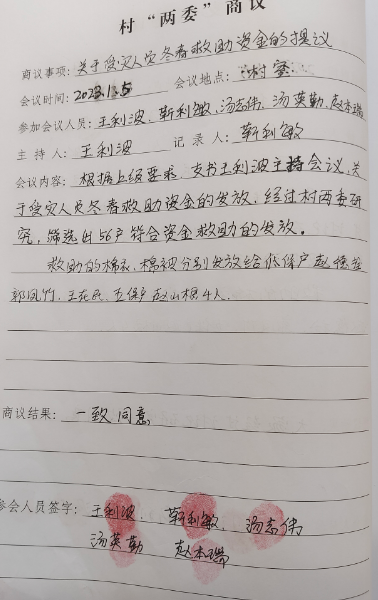 村“两委”商议
商议事项: 关于受灾人员冬春救助资金的提议
会议时间: 会议地点: 村室
参加会议人员: 王利波、靳利敏、汤志伟、汤英勤、赵本瑞
主持人 王利波 记录人 靳利敏
会议内容: 根据上级要求,支书王利波主持会议,关
于受灾人员冬春救助资金的发放,经过村两委研
究,筛选出56户符合资金救助的发放。
救助的棉衣、棉被分别发放给低保户赵
郭凤竹、王在民、五保户赵山根4人.
商议结果: 一致同意
参会人员签字: 王利波、靳利敏、汤志伟
汤英勤 赵本瑞